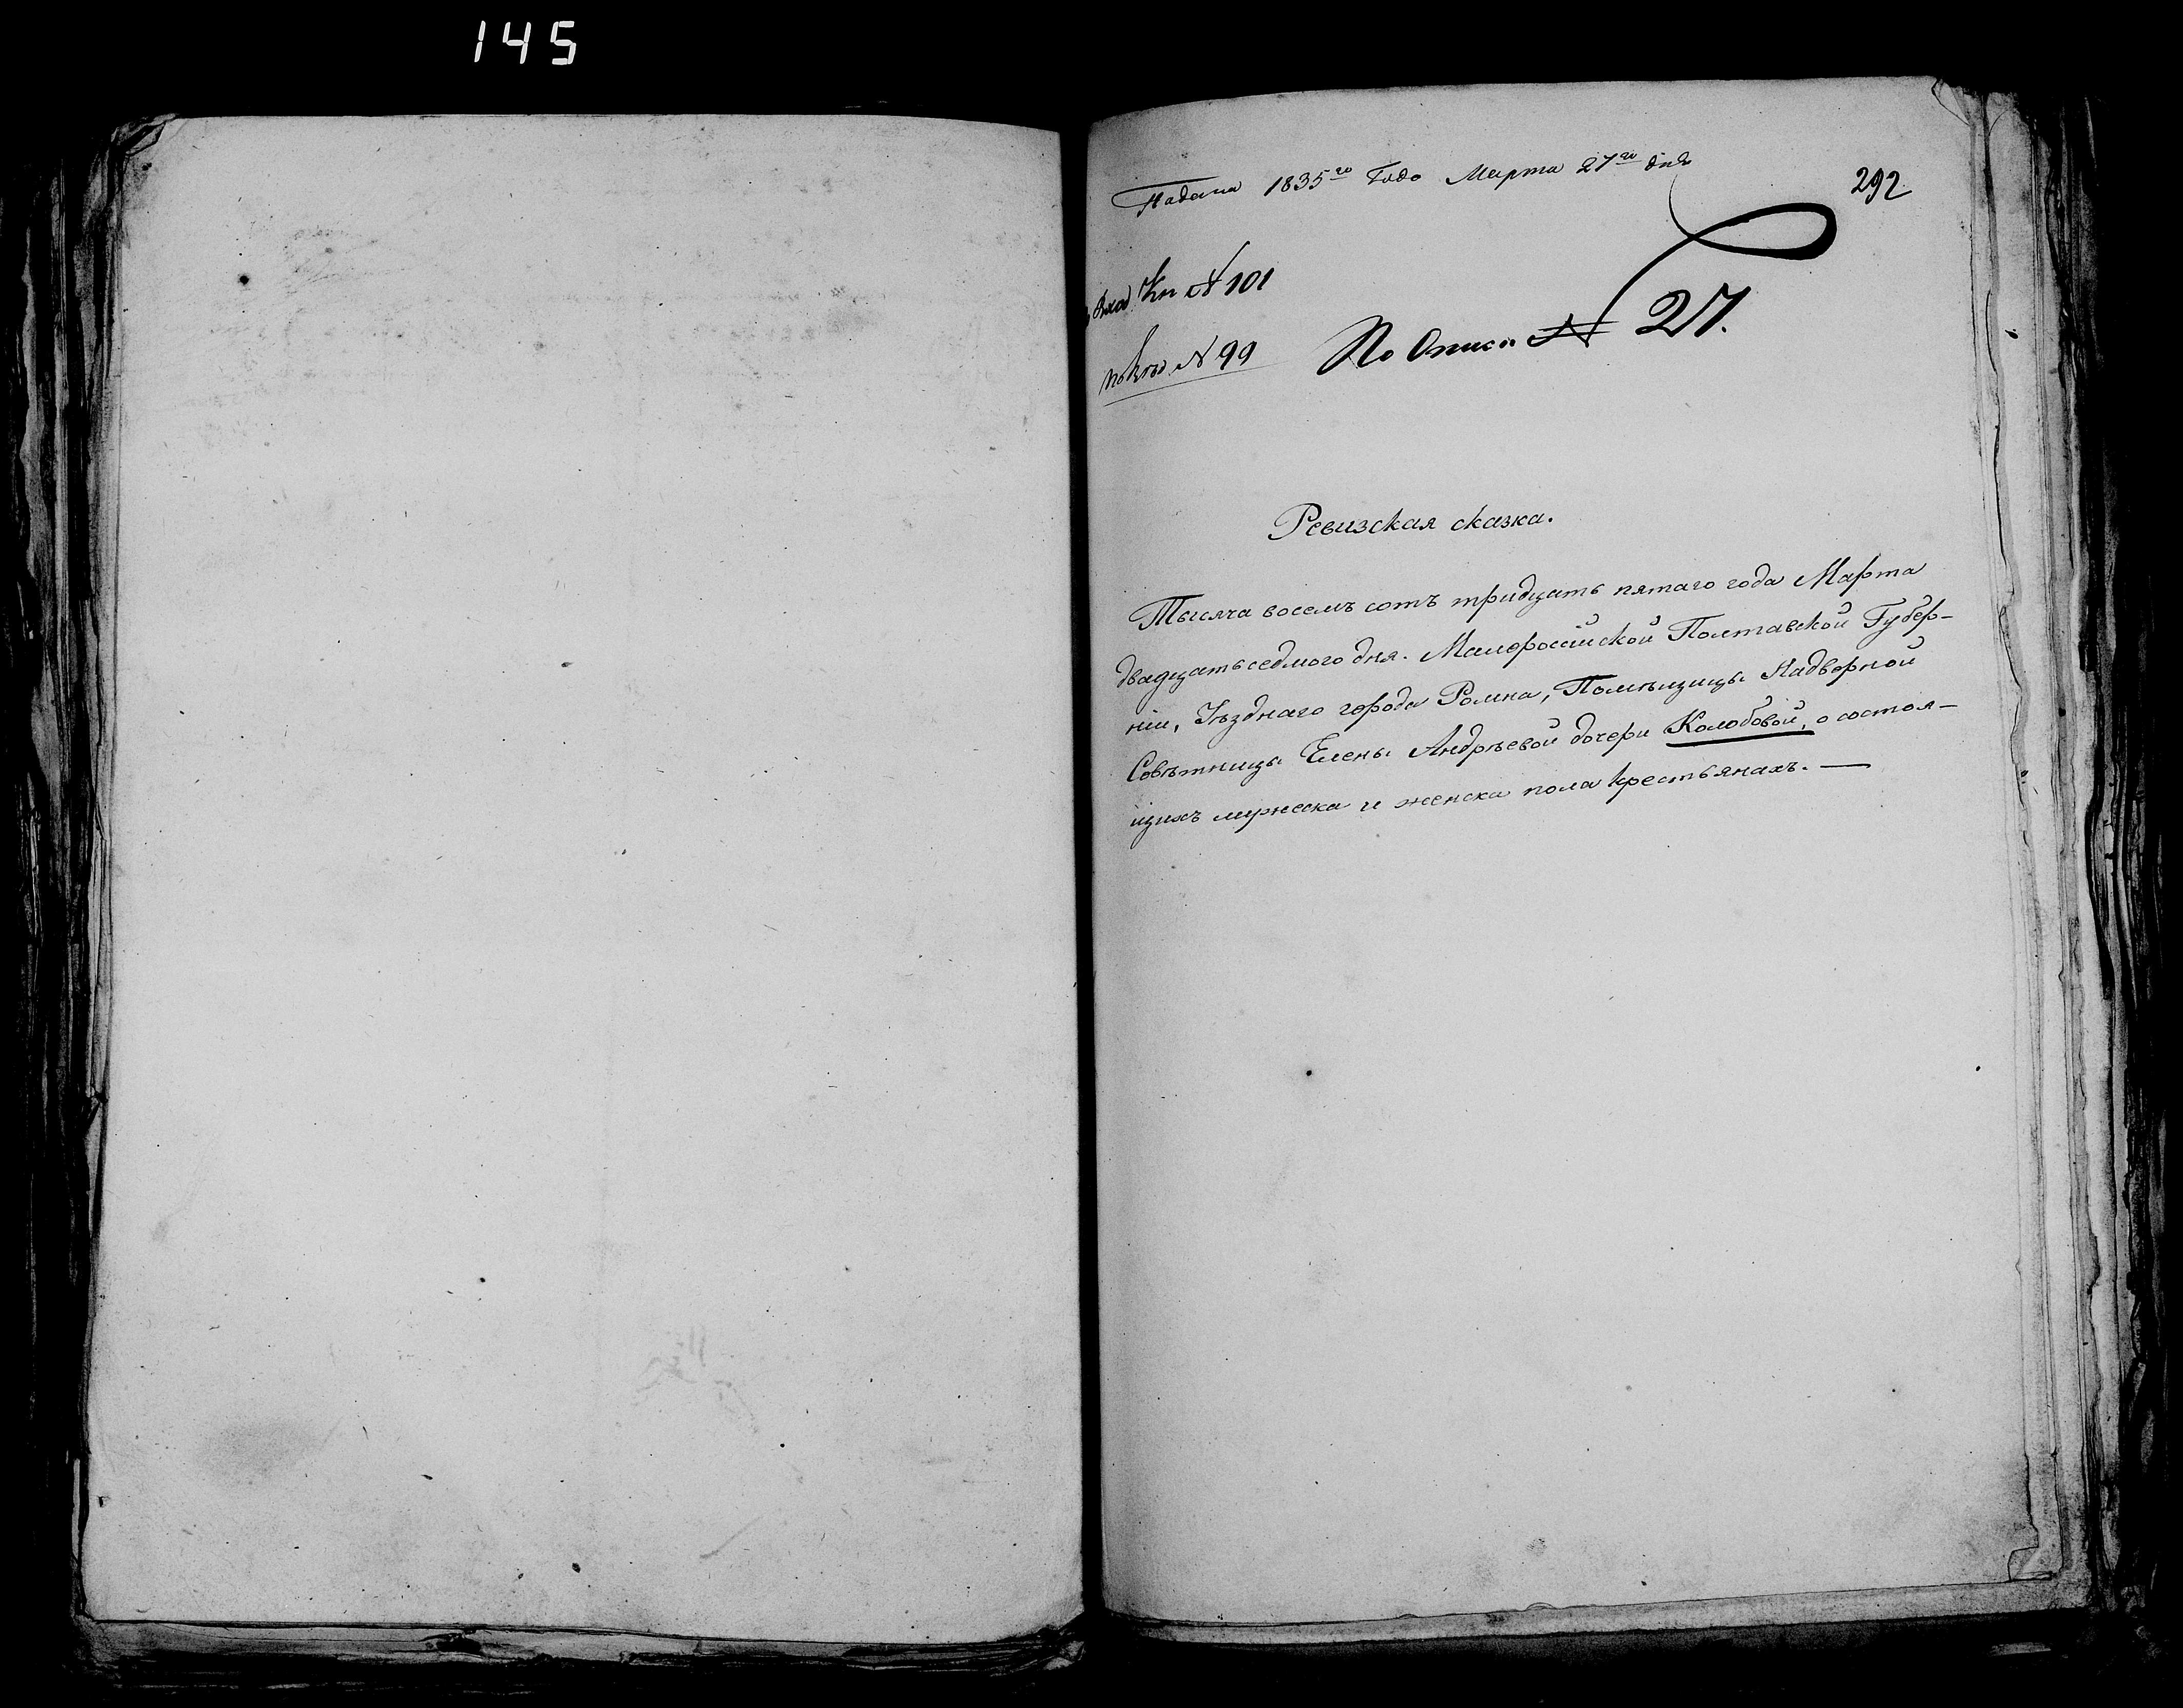 145
Подана 1835го Года Марта 27го дня
292
Вход. Кн №101
№ 99
По Описи № 27.
Ревизская сказка.
Тысяча восемъ сотъ тридцать пятаго года Марта
двадцать седмого дня. Малоросiйской Полтавской Губер-
нiи, Уѣзднаго города Ромна, Помѣщицы Надворной
Совѣтницы Елены Андрѣевой дочери Колобовой, о состоя-
щихъ мужеска и женска пола крестьянахъ. —